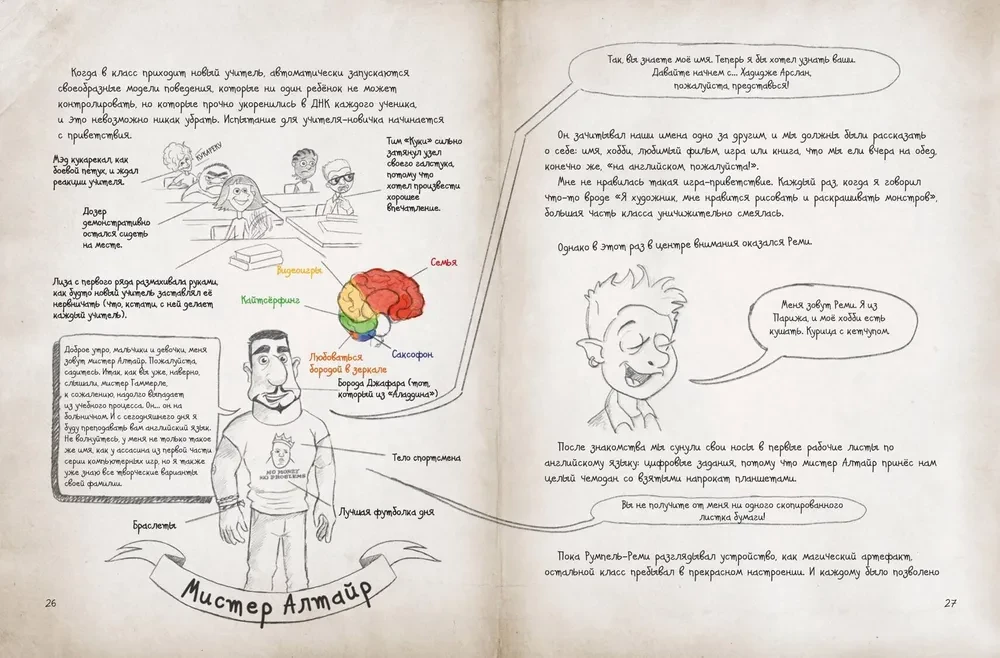 Когда в класс приходит новый учитель, автоматически запускаются
своеобразные модели поведения, которые ни один ребёнок не может
контролировать, но которые прочно укоренились в ДНК каждого ученика,
и это невозможно никак убрать. Испытание для учителя-новичка начинается
с приветствия.
Мэд кукарекал, как
боевой петух, и ждал
реакции учителя.
КУКАРЕКУ
Тим «Куки» сильно
затянул узел
своего галстука,
потому что
хотел произвести
хорошее
впечатление.
Дозер
демонстративно
остался сидеть
на месте.
Лиза с первого ряда размахивала руками,
как будто новый учитель заставлял её
нервничать (что, кстати, с ней делает
каждый учитель).
Видеоигры
Семья
Кайтсёрфинг
Любоваться
бородой в зеркале
Саксофон
Доброе утро, мальчики и девочки, меня
зовут мистер Алтайр. Пожалуйста,
садитесь. Итак, как вы уже, наверно,
слышали, мистер Гаммерле,
к сожалению, надолго выпадает
из учебного процесса. Он... он на
больничном. И с сегодняшнего дня я
буду преподавать вам английский язык.
Не волнуйтесь, у меня не только такое
же имя, как у ассасина из первой части
серии компьютерных игр, но я также
уже знаю все творческие варианты
своей фамилии.
Борода Джафара (тот,
который из «Аладдина»)
Тело спортсмена
NO MONEY
NO PROBLEMS
Лучшая футболка дня
Браслеты
Мистер Алтайр
26
Так, вы знаете моё имя. Теперь я бы хотел узнать ваши.
Давайте начнем с... Хадидже Арслан,
пожалуйста, представься!
Он зачитывал наши имена одно за другим, и мы должны были рассказать
о себе: имя, хобби, любимый фильм, игра или книга, что мы ели вчера на обед,
конечно же, «на английском пожалуйста!».
Мне не нравилась такая игра-приветствие. Каждый раз, когда я говорил
что-то вроде «Я художник, мне нравится рисовать и раскрашивать монстров»,
большая часть класса уничижительно смеялась.
Однако в этот раз в центре внимания оказался Реми.
Меня зовут Реми. Я из
Парижа, и моё хобби есть
кушать. Курица с кетчупом.
После знакомства мы сунули свои носы в первые рабочие листы по
английскому языку: цифровые задания, потому что мистер Алтайр принёс нам
целый чемодан со взятыми напрокат планшетами.
Вы не получите от меня ни одного скопированного
листка бумаги!
Пока Румпель-Реми разглядывал устройство, как магический артефакт,
остальной класс пребывал в прекрасном настроении. И каждому было позволено
27